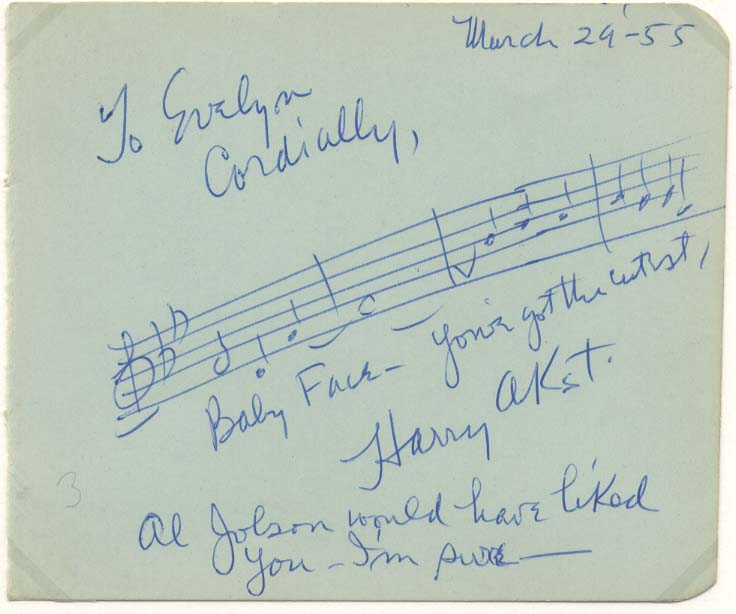 March 29-55
To Evelyn
Cordially,
Baby Face - You've got the cutest,
Harry Akst.
3
Al Jolson would have liked
You - I'm sure -